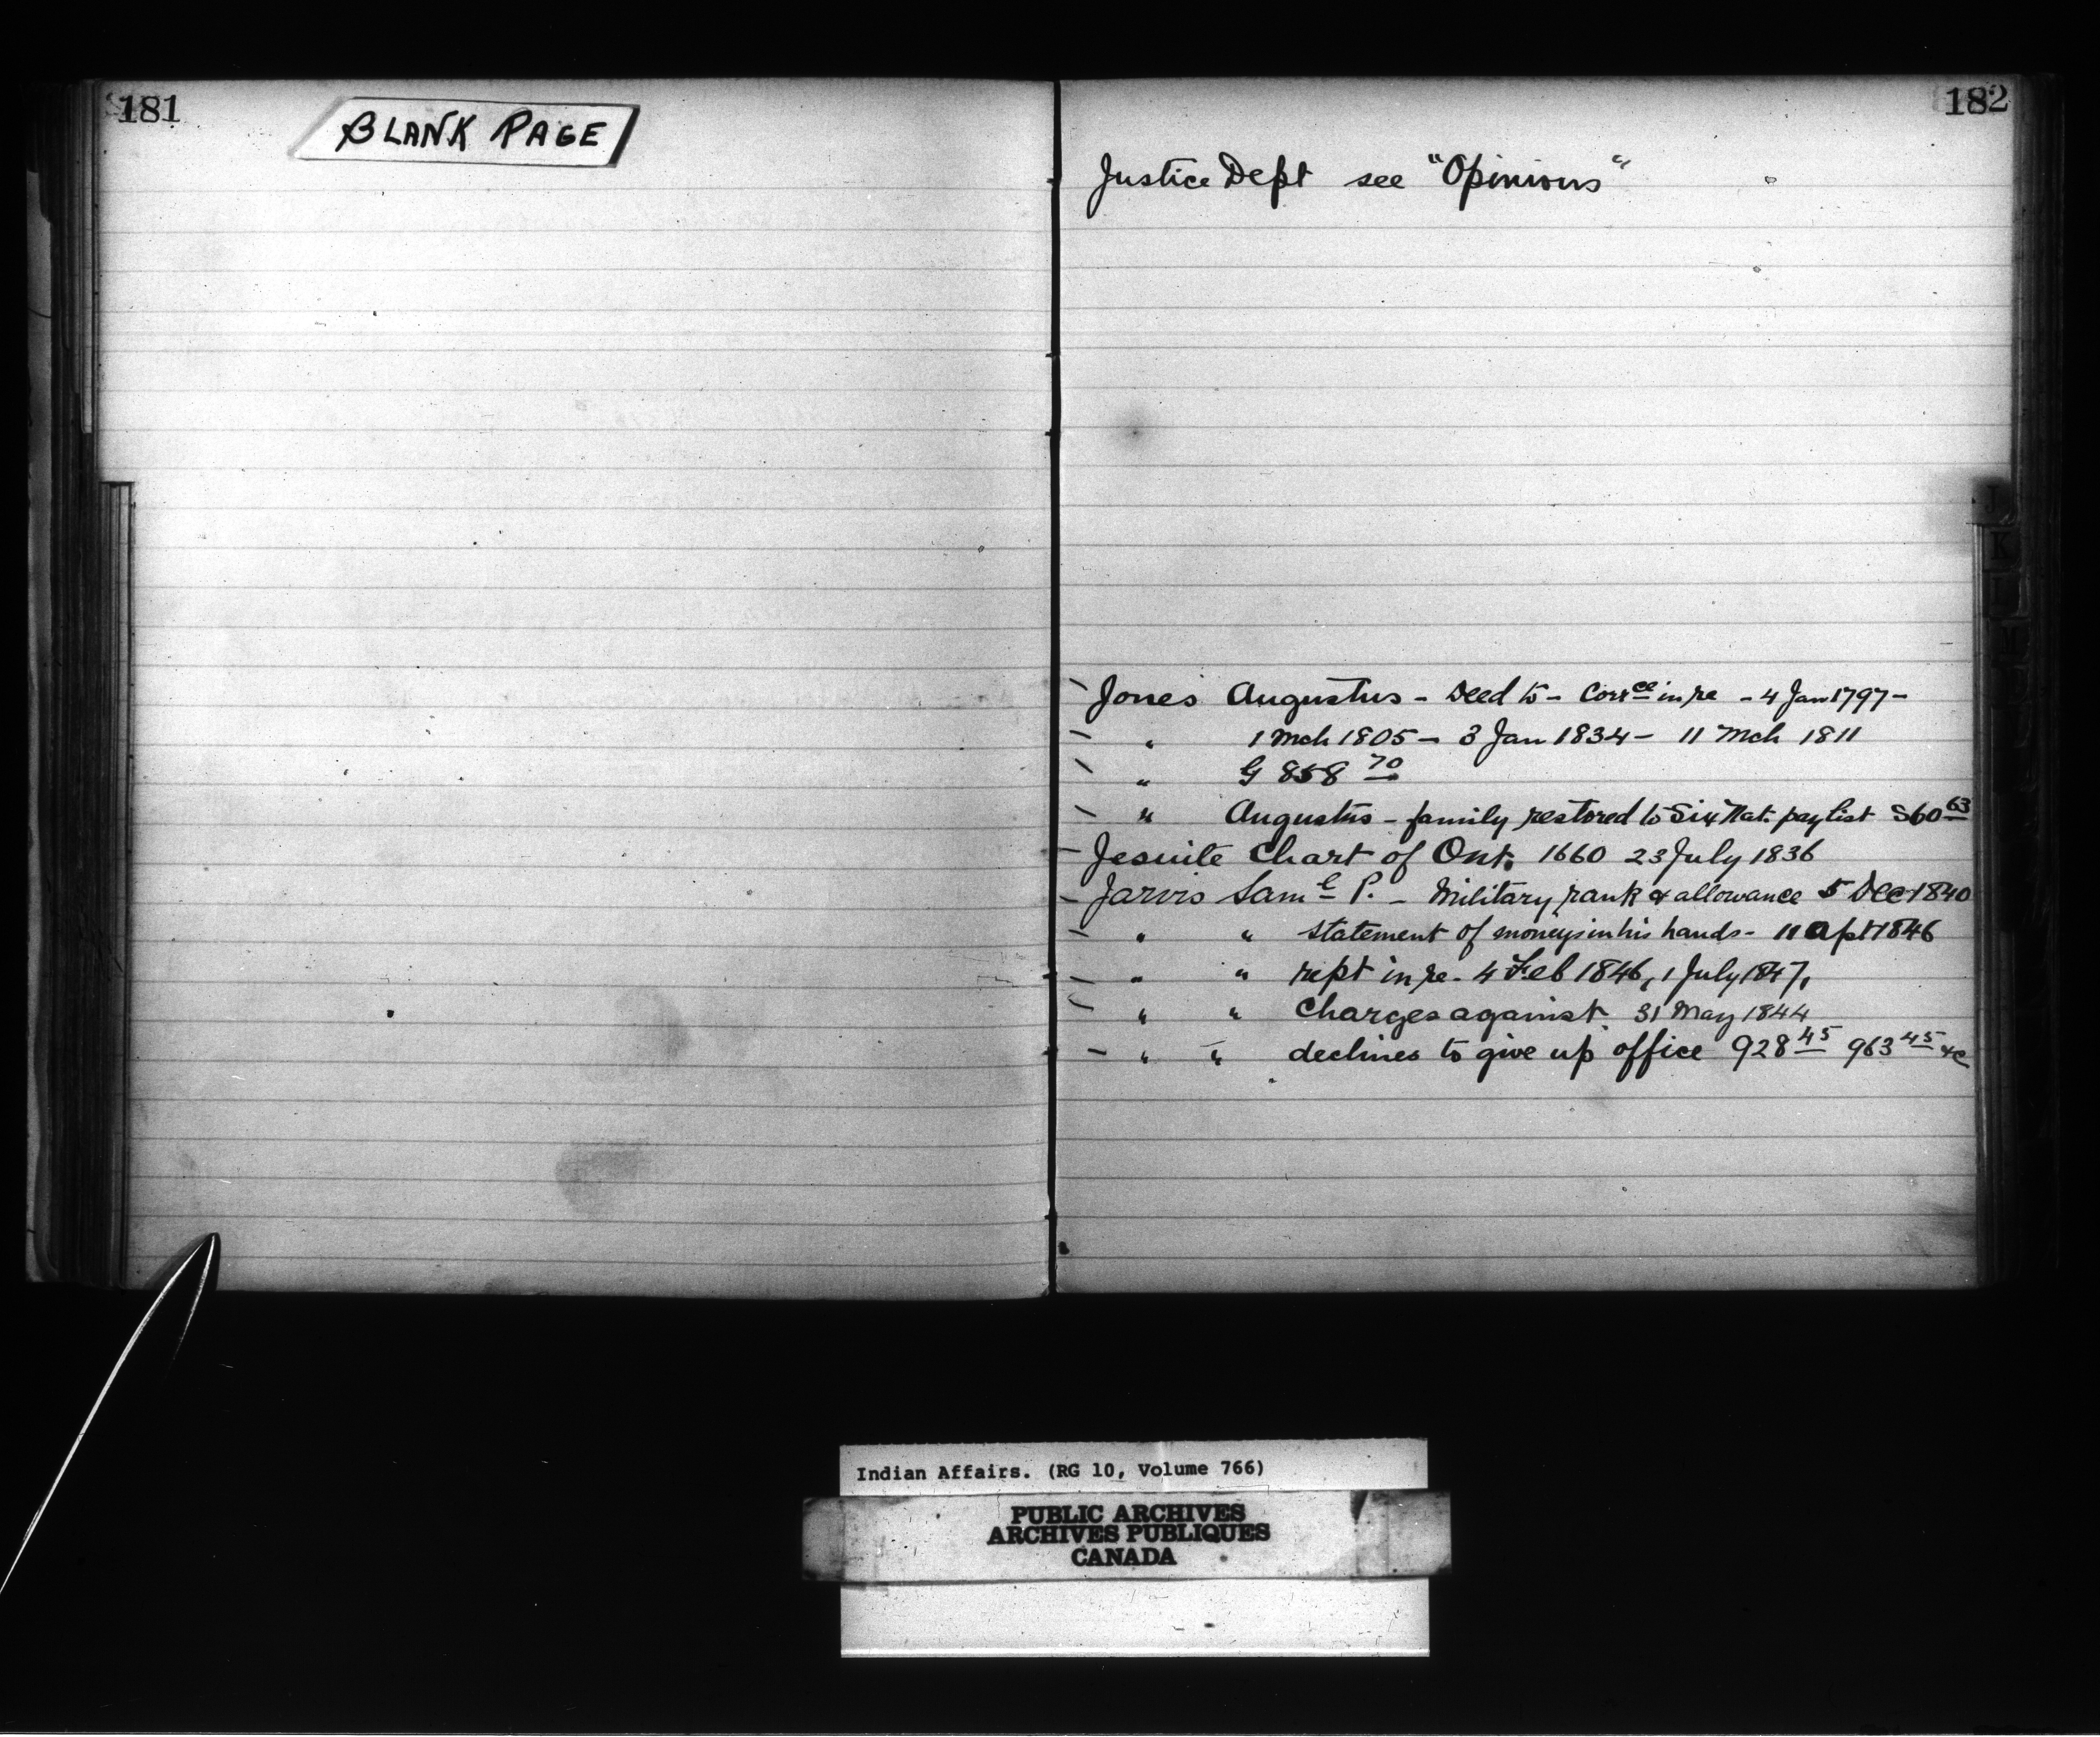 181
BLANK PAGE
182
Justice Dept see "Opinions"
Jones Augustus - Deed to - Corrce in re - 4 Jan 1797 -
" 1 Mch 1805 - 3 Jan 1834 - 11 Mch 1811
" G 858 70
" Augustus - family restored to Six Nat. pay list S60 63
Jesuite Chart of Ont. 1660 23 July 1836
Jarvis Saml P. - Military rank & allowance 5 Dec 1840
" " statement of moneys in his hands - 11 Apl 1846
" " rept in re - 4 Feb 1846, 1 July 1847,
" " Charges against 31 May 1844
" " declines to give up office 928 45 963 45 &c
J
K
L
M
Indian Affairs. (RG 10, Volume 766)
PUBLIC ARCHIVES
ARCHIVES PUBLIQUES
CANADA